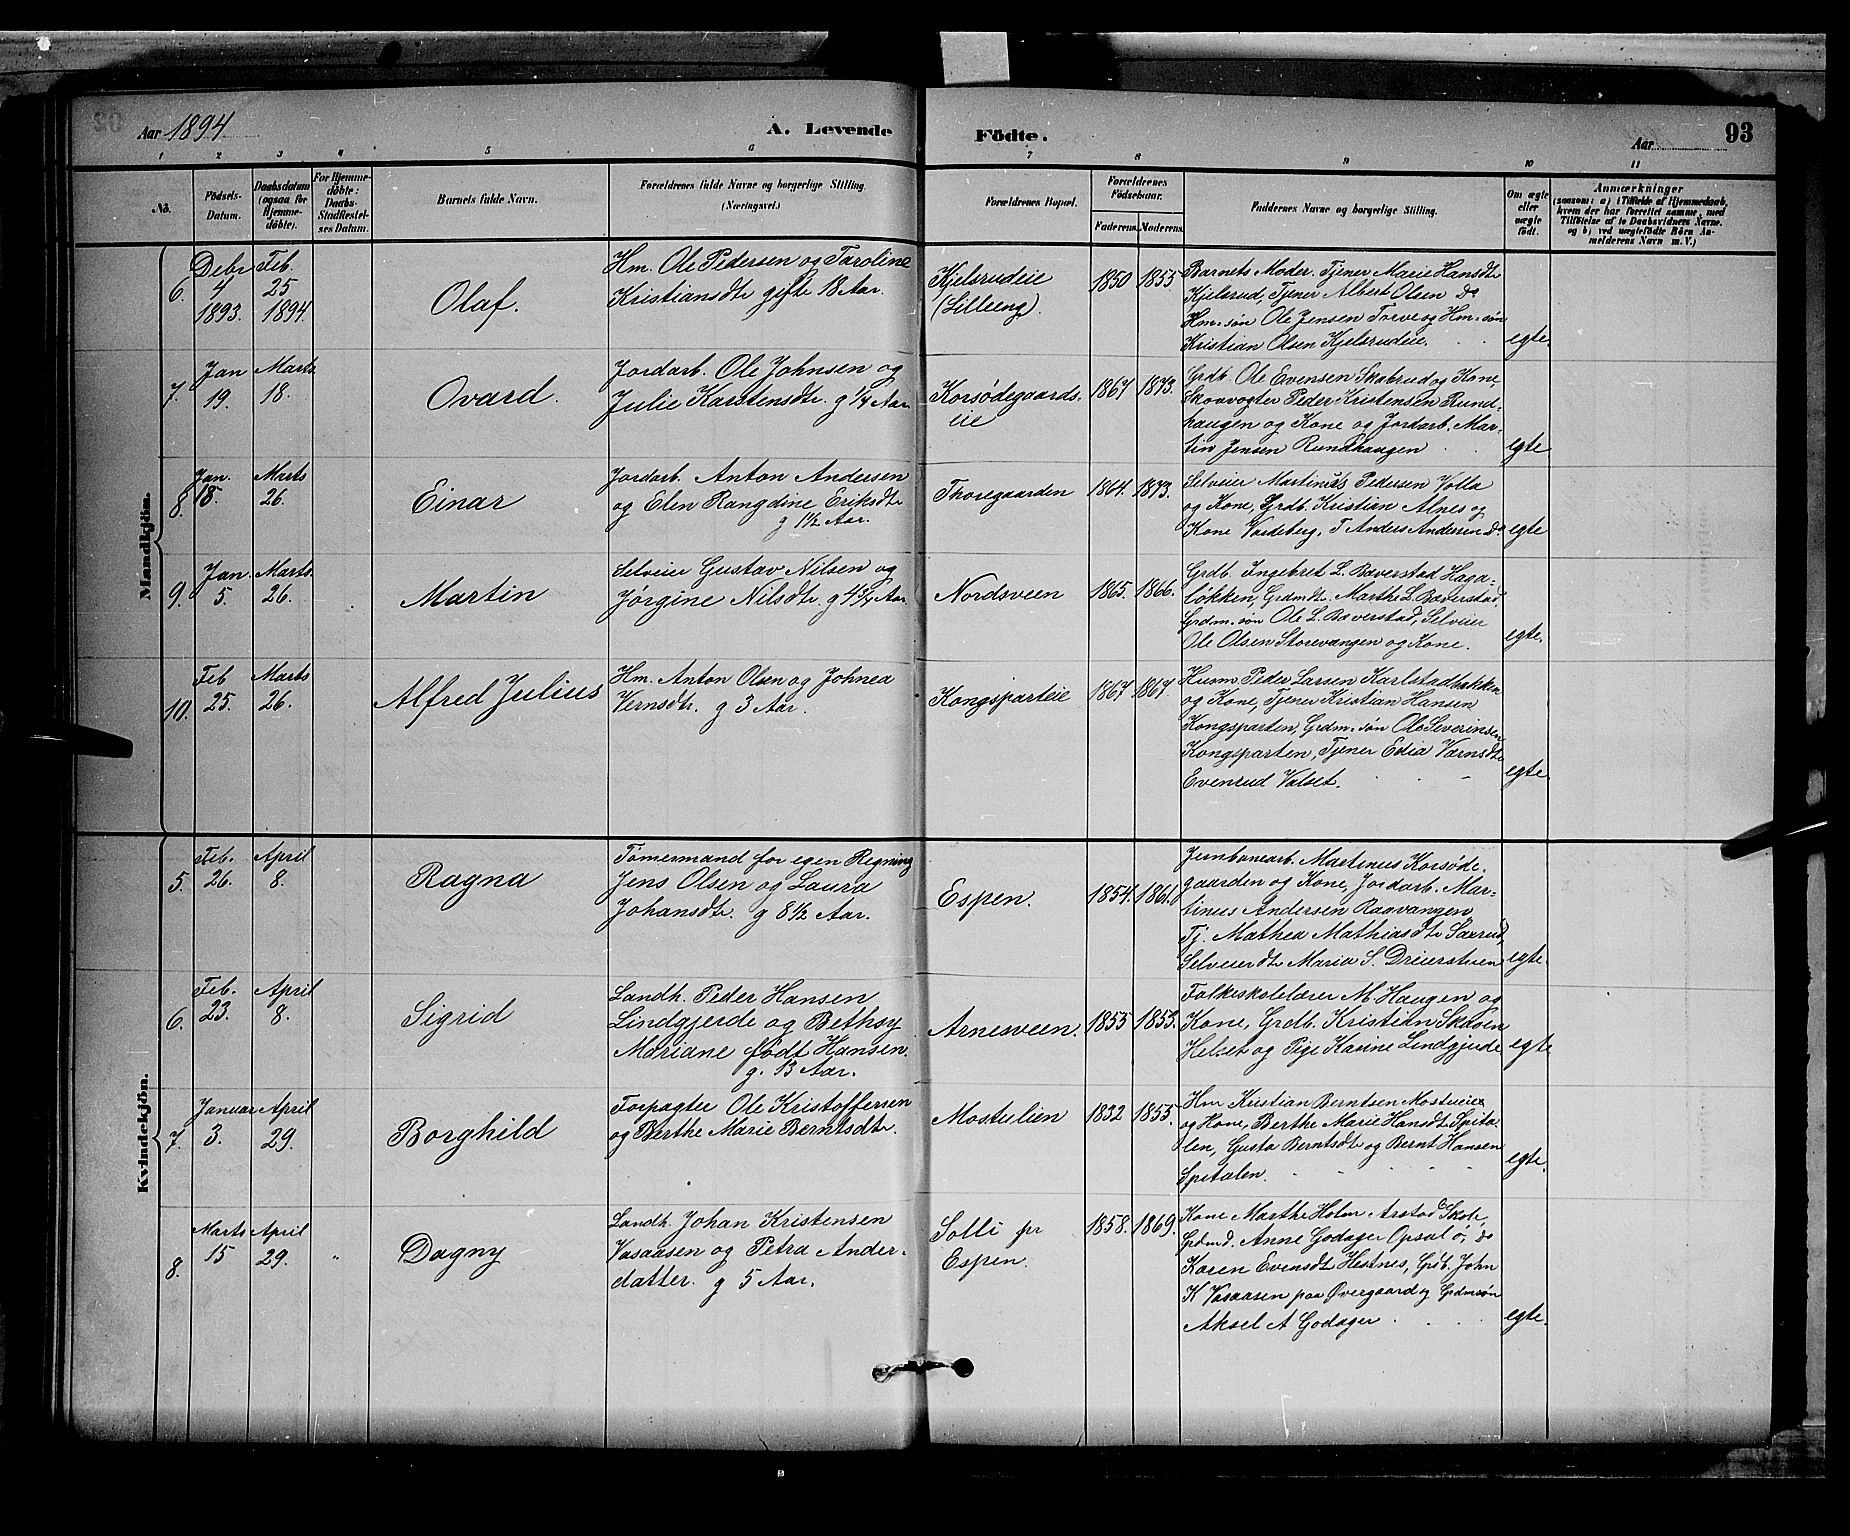 Aar 1894.
A. Levende Födte.
Aar
93
1 2 3 4 5 6 7 8 9 10 11
No.
Födsels-
Datum.
Daabsdatum
(ogsaa for
Hjemme-
döbte).
For Hjemme-
döbte:
Daabs-
Stadfæstel-
ses Datum.
Barnets fulde Navn.
Forældrenes fulde Navne og borgerlige Stilling.
(Næringsvei.)
Forældrenes Bopæl.
Forældrenes
Födselsaar.
Faderens. Moderens.
Faddernes Navne og borgerlige Stilling.
Om ægte
eller
uægte
födt.
Anmærkninger
(saasom: a) i Tilfælde af Hjemmedaab,
hvem der har forrettet samme, med
Tilföielse af to Daabsvidners Navne.
og b) ved uægtefödte Börn An-
melderens Navn m. V.)
Mandkjön.
6.
Debr
4
1893.
Feb.
25
1894.
Olaf.
Hm. Ole Pedersen og Caroline
Kristiansdtr gifte 18 Aar.
Kjelsrudeie
(Lilleeng)
1850 1855
Barnets Moder, Tjener Marie Hansdtr
Kjelsrud, Tjener Albert Olsen do
Hm.søn Ole Jensen Torve og Hm.søn
Kristian Olsen Kjelsrudeie.
egte.
7.
Jan
19.
Marts
18.
Ovard.
Jordarb. Ole Johnsen og
Julie Karstensdtr. g 1/4 Aar
Korsödegaards-
eie
1867 1873.
Grdb. Ole Evensen Skabrud og Kone,
Skovvogter Peder Kristensen Rund-
haugen og Kone og Jordarb. Mar-
tin Jensen Rundhaugen
egte
8.
Jan.
18.
Marts
26.
Einar
Jordarb. Anton Andersen
og Elen Rangdine Eriksdtr
g 1 1/2 Aar.
Thoregaarden
1864. 1873.
Selveier Martinus Pedersen Volla
og Kone, Grdb. Kristian Alnes og
Kone Vardeberg, T Anders Andersen do
egte
9.
Jan.
5.
Marts
26.
Martin
Selveier Gustav Nilsen og
Jørgine Nilsdtr. g 4 3/4 Aar
Nordsveen
1865. 1866.
Grdb. Ingebret L. Bæverstad Haga-
løkken, Grdmdtr. Marthe L. Bæverstad,
Grdm.søn Ole L. Bæverstad, Selveier
Ole Olsen Storevangen og Kone.
egte.
10.
Feb
25.
Marts
26.
Alfred Julius
Hm. Anton Olsen og Johnea
Vernsdtr. g 3 Aar.
Kongsparteie
1867 1867.
Husm. Peder Larsen Karlstadbakken
og Kone, Tjener Kristian Hansen
Kongsparten, Grdm.søn Ole Severinsen
Kongsparten, Tjener Edia Værnsdtr
Evenrud Valset.
egte
Kvindekjön.
5.
Feb.
26.
April
8.
Ragna
Tømermand for egen Regning
Jens Olsen og Laura
Johansdtr. g 8 1/2 Aar.
Espen.
1854. 1861.
Jernbanearb. Martinus Korsøde-
gaarden og Kone, Jordarb. Mar-
tinus Andersen Raavangen,
Tj. Mathea Mathiasdtr Saxrud,
Selveierdtr Maria S. Dreiersteen
egte.
6.
Feb.
23.
April
8.
Sigrid
Landh. Peder Hansen
Lindgjerde og Bethsy
Mariane født Hansen.
g. 13 Aar.
Arnesveen.
1855 1853.
Folkeskolelærer M. Haugen og
Kone, Grdb. Kristian Skaven
Helset og Pige Karine Lindgjerde
egte
7.
Januar
3.
April
29.
Borghild
Forpagter Ole Kristoffersen
og Berthe Marie Berntsdtr.
Mostulien
1832 1855.
Hm Kristian Berntsen Mostueie
og Kone, Berthe Marie Hansdt Spita-
len, Gusta Berntsdtr og Bernt Hansen
Spitalen.
egte.
8.
Marts
15
April
29.
"
Dagny
Landh. Johan Kristensen
Vasaasen og Petra Anders-
datter. g 5 Aar.
Solli pr
Espen.
1858. 1869.
Kone Marthe Holm Arstad Skole,
Grdmd. Anne Godager Opsal ø, do
Karen Evensdt Hestnes, Grdb. John
K Vasaasen paa Øvergaard og Grdmsøn
Aksel A Godager
egte.